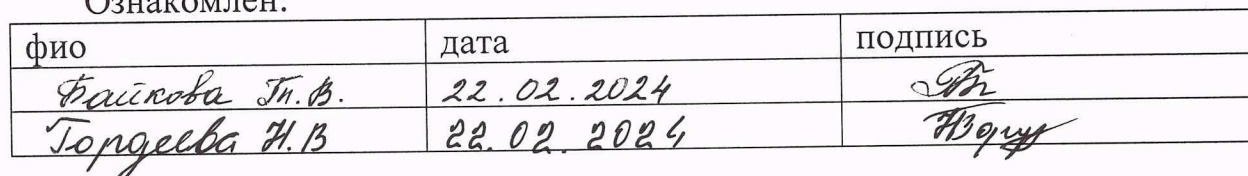 Ознакомлен:
фио дата подпись
Байкова Т.В. 22.02.2024
Гордеева Н.В 22.02.2024